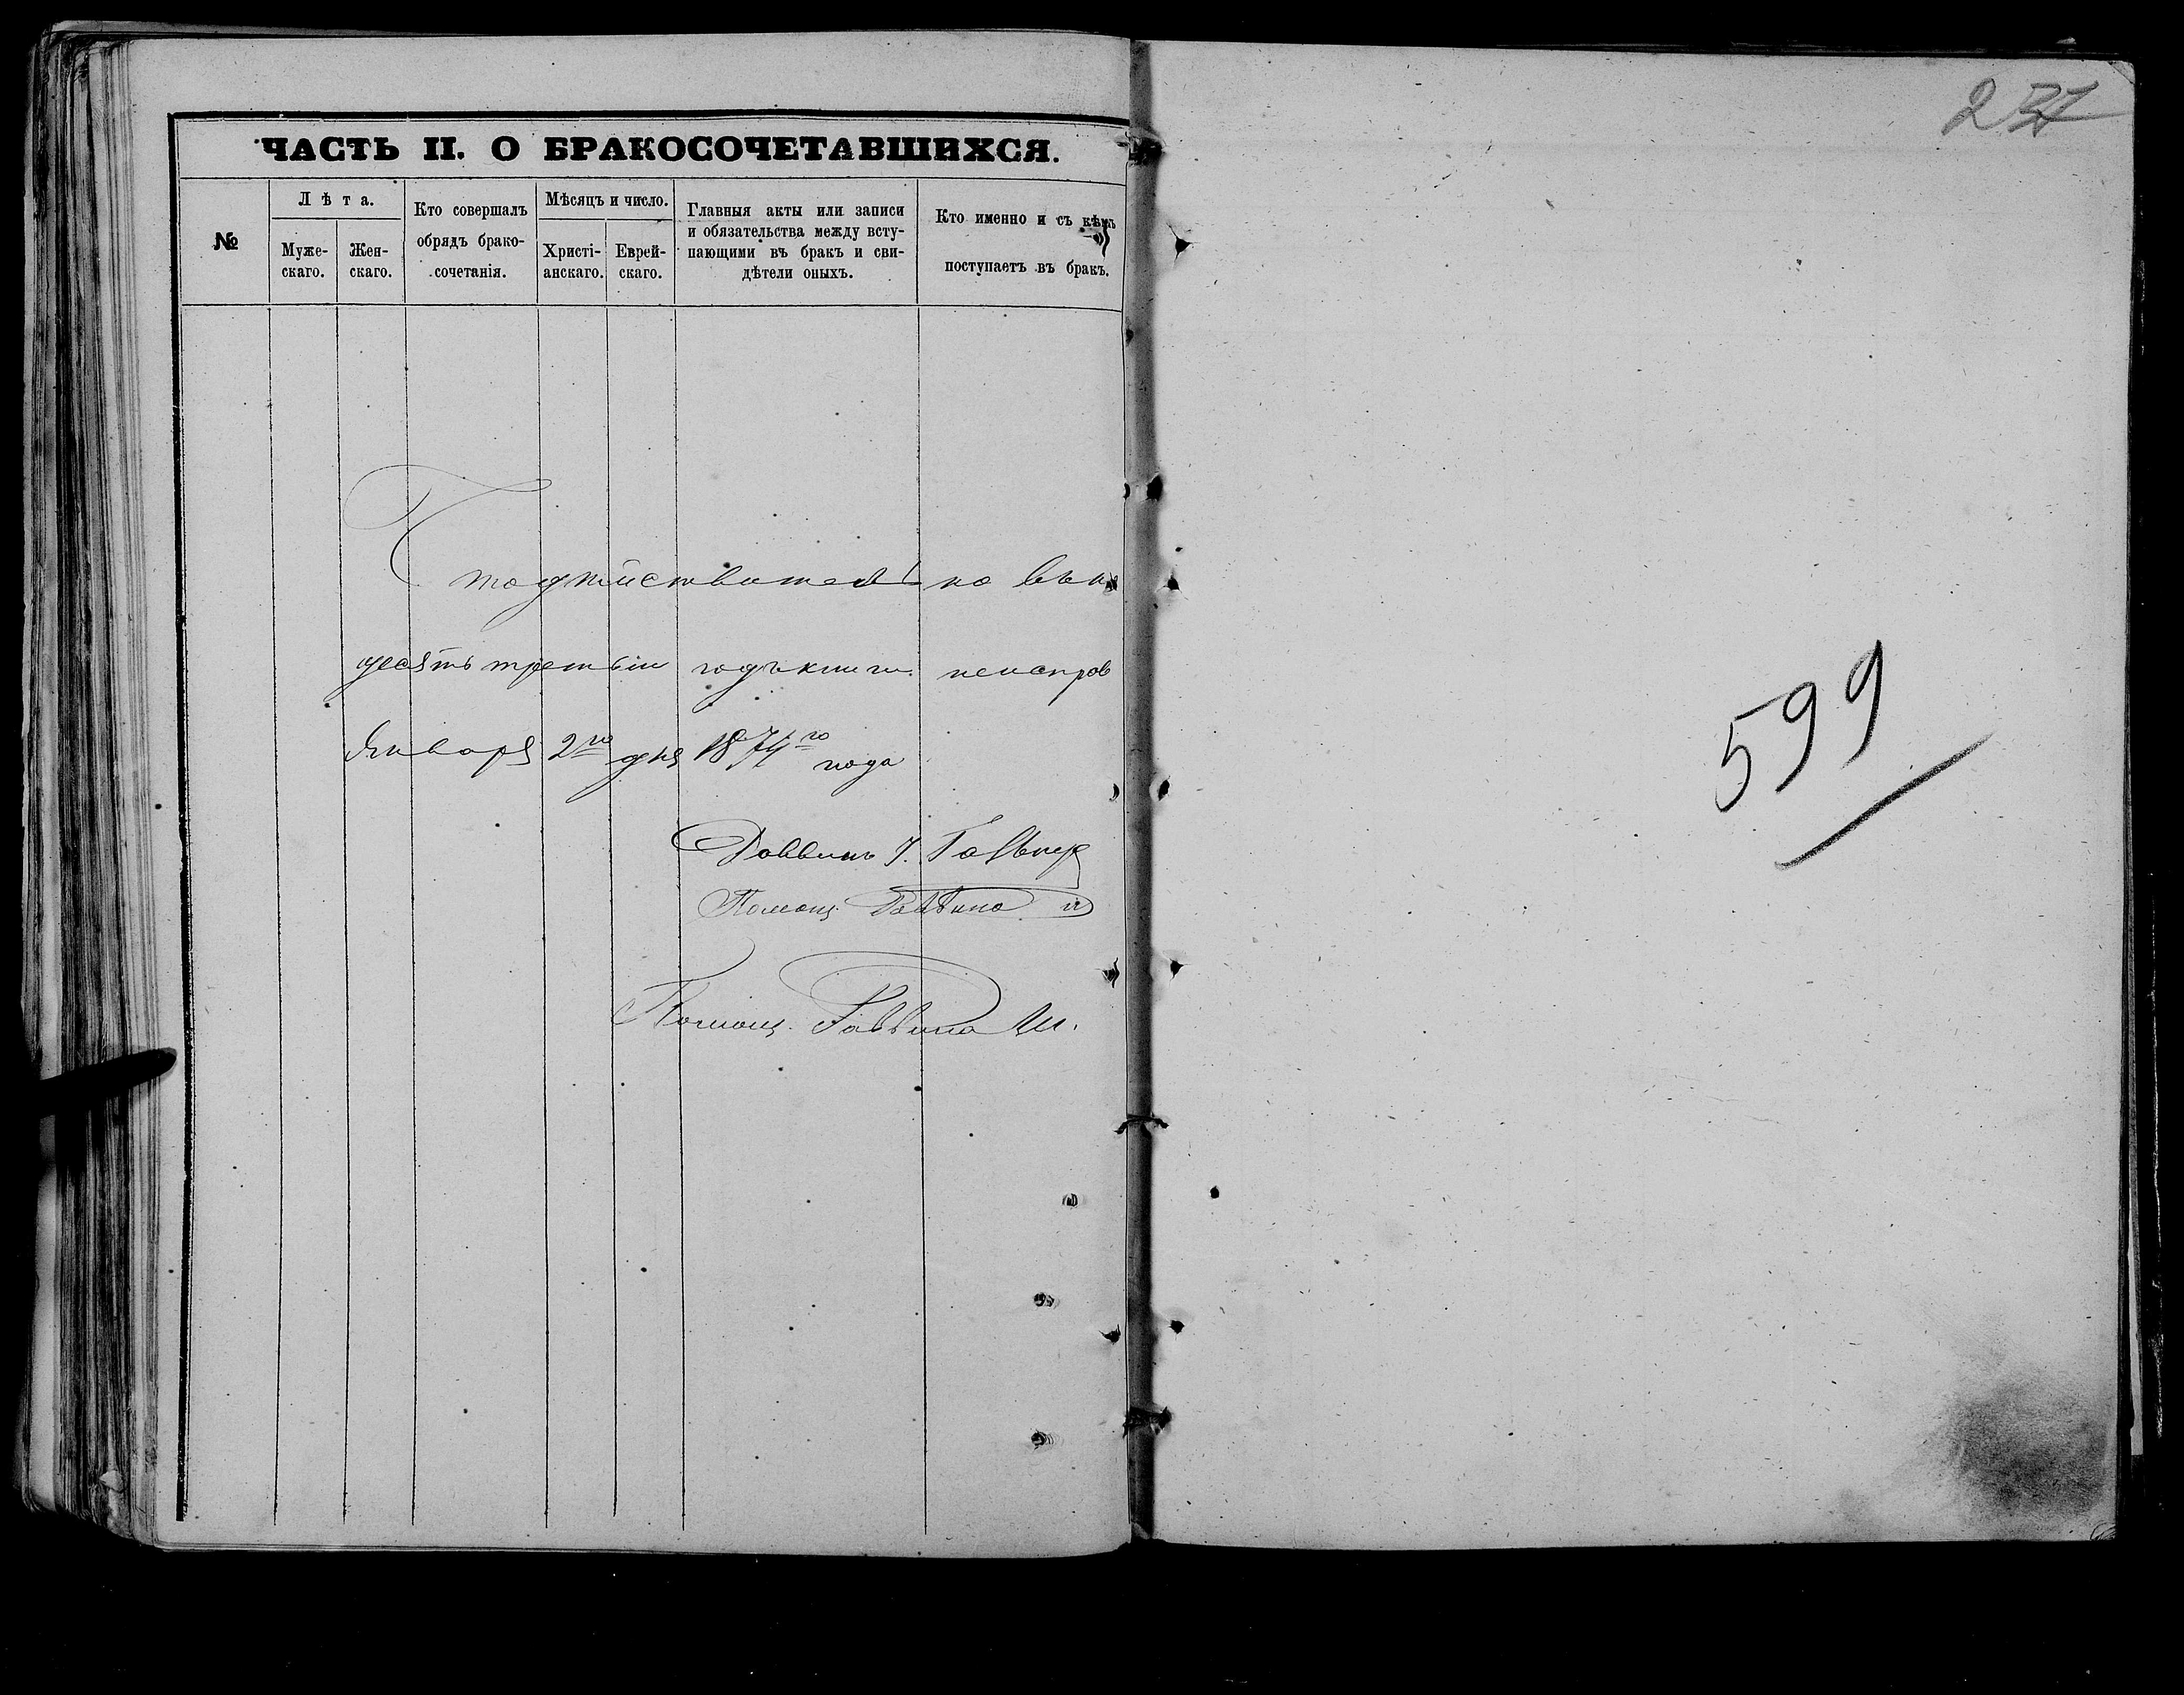 ЧАСТЬ II. О БРАКОСОЧЕТАВШИХСЯ.
№
Лѣта.
Муже-
скаго.
Жен-
скаго.
Кто совершалъ
обрядъ брако-
сочетанія.
Мѣсяцъ и число.
Христі-
анскаго.
Еврей-
скаго.
Главныя акты или записи
и обязательства между всту-
пающими въ бракъ и сви-
дѣтели оныхъ.
Кто именно и съ кѣмъ
поступаетъ въ бракъ.
Что дѣйствительно въ
десять третьій годъ книги неисправ
Января 2го дня 1874го года
Раввинъ
Помощ. Раввина
Помощ. Раввина Ш.
599